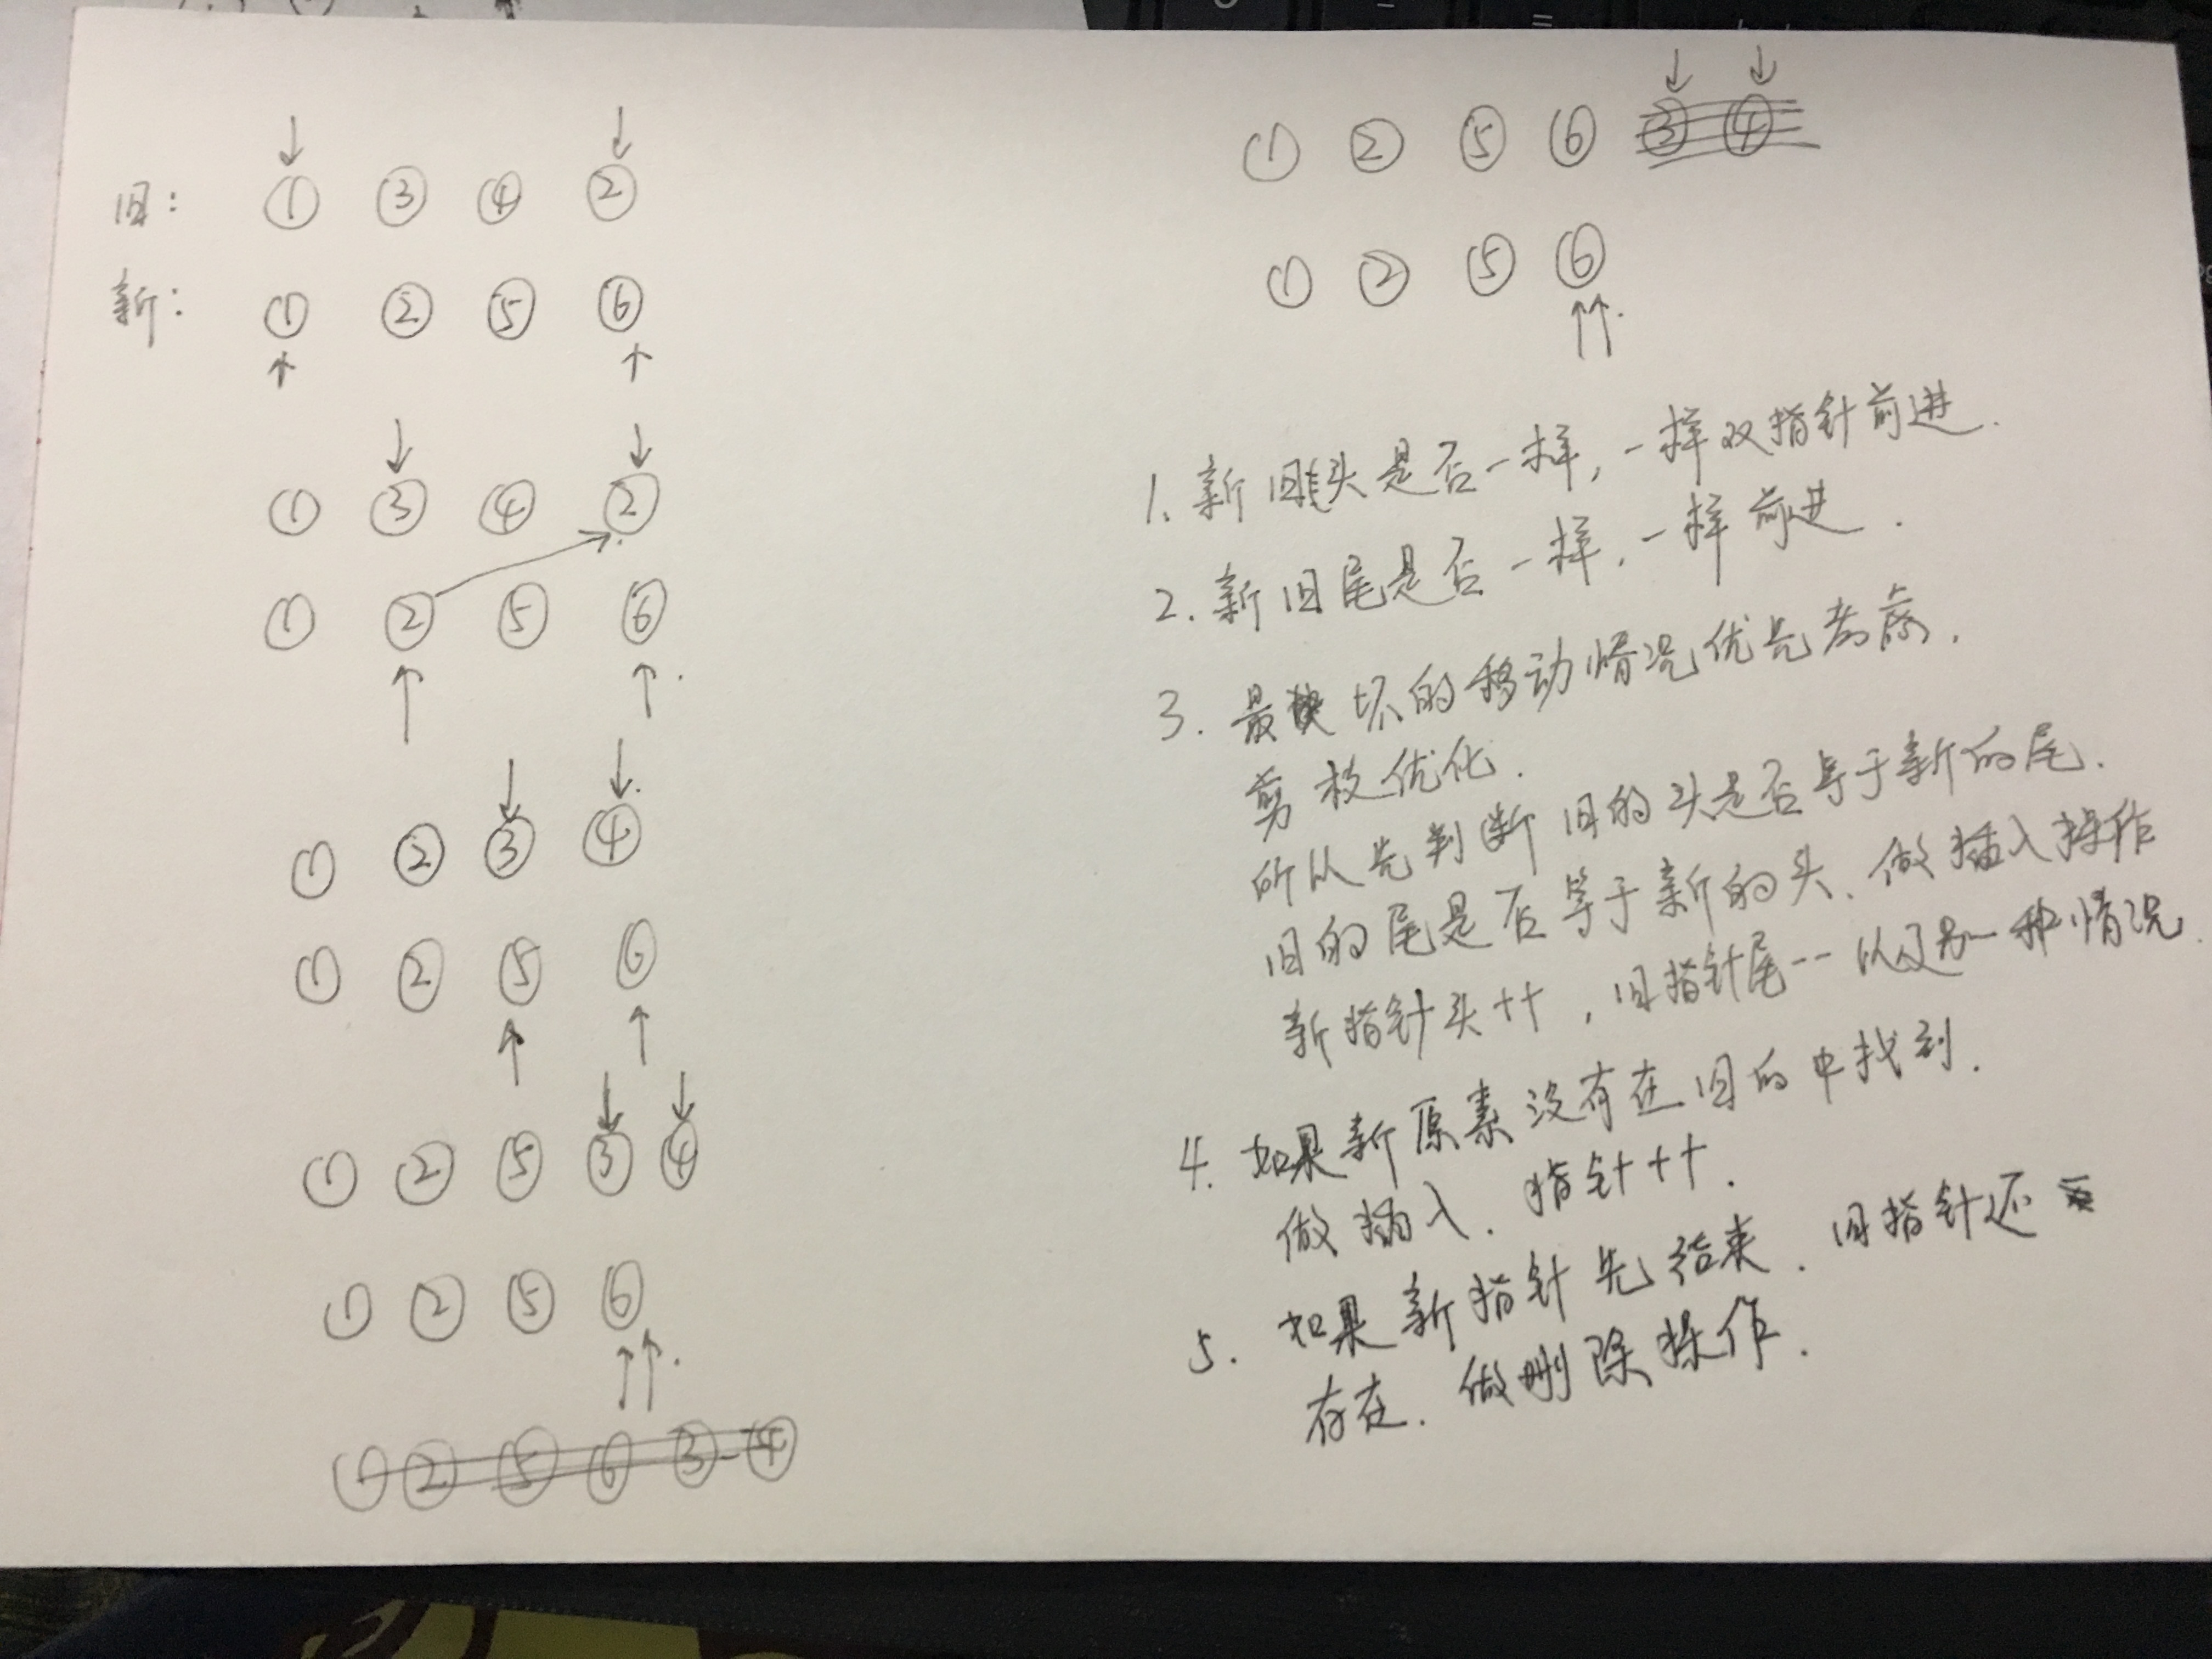 旧: ① ③ ④ ②
新: ① ② ⑤ ⑥
① ③ ④ ②
① ② ⑤ ⑥
① ② ③ ④
① ② ⑤ ⑥
① ② ⑤ ③ ④
① ② ⑤ ⑥
① ② ⑤ ⑥ ③ ④
① ② ⑤ ⑥ ③ ④
① ② ⑤ ⑥
1、新旧头是否一样,一样双指针前进.
2.新旧尾是否一样,一样前进.
3.最坏的移动情况优先考虑.
剪枝优化.
所以先判断旧的头是否等于新的尾.
旧的尾是否等于新的头、做插入操作
新指针头++,旧指针尾--以这为一种情况.
4.如果新原素没有在旧的中找到.
做插入.指针++.
5.如果新指针先结束.旧指针还
存在.做删除操作.